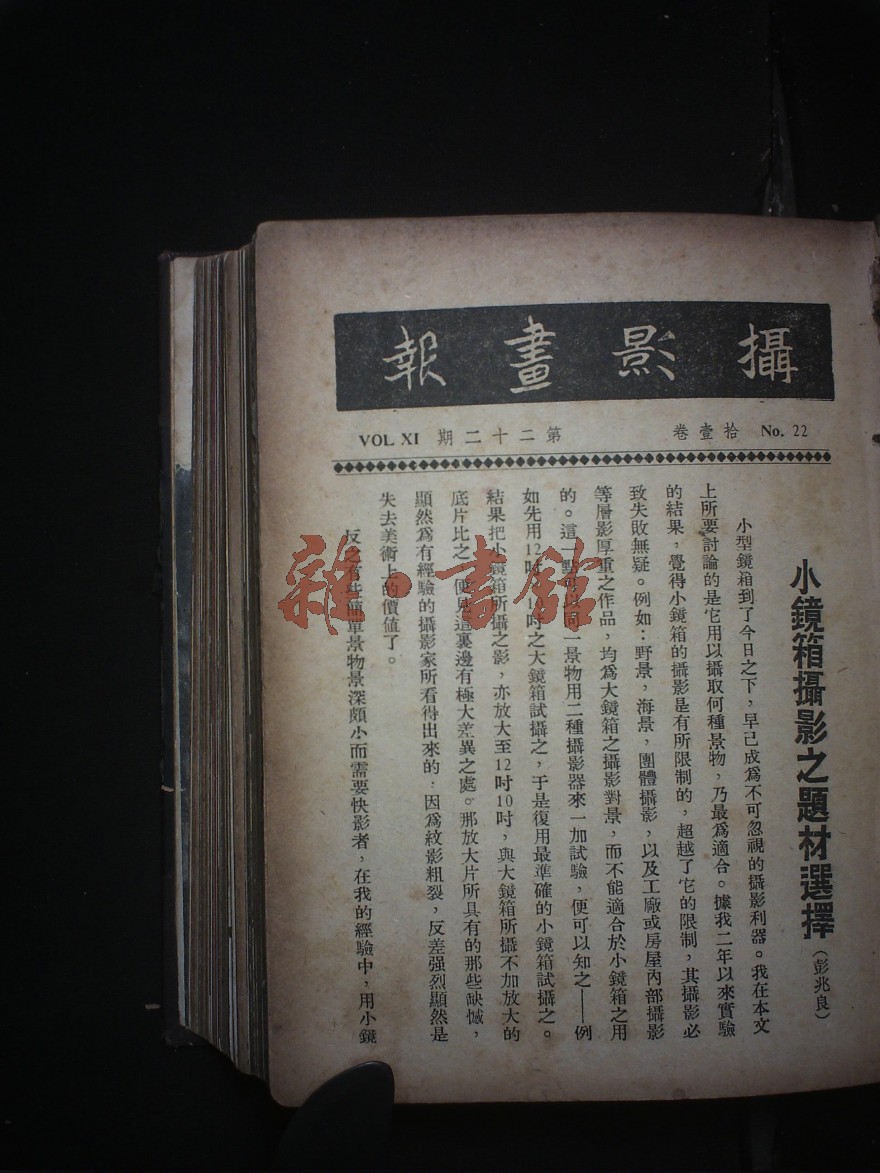 攝影畫報
No. 22 拾壹卷 第二十二期 VOL XI
小鏡箱攝影之題材選擇
(彭兆良)
小型鏡箱到了今日之下，早已成爲不可忽視的攝影利器。我在本文
上所要討論的是它用以攝取何種景物，乃最爲適合。據我二年以來實驗
的結果，覺得小鏡箱的攝影是有所限制的，超越了它的限制，其攝影必
致失敗無疑。例如：野景，海景，團體攝影，以及工廠或房屋內部攝影
等層影厚重之作品，均爲大鏡箱之攝影對景，而不能適合於小鏡箱之用
的。這一點可以同一景物用二種攝影器來一加試驗，便可以知之——例
如先用12吋10吋之大鏡箱試攝之，于是復用最準確的小鏡箱試攝之。
結果把小鏡箱所攝之影，亦放大至12吋10吋，與大鏡箱所攝不加放大的
底片比之，便見這裏邊有極大差異之處。那放大片所具有的那些缺憾，
顯然爲有經驗的攝影家所看得出來的：因爲紋影粗裂，反差强烈顯然是
失去美術上的價值了。
反之有些簡單景物景深頗小而需要快影者，在我的經驗中，用小鏡
雜·書館